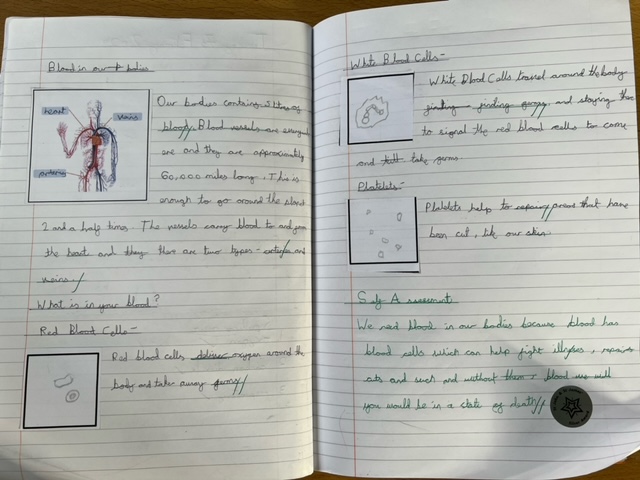 Blood in our bodies
heart
veins
artery
Our bodies contain 5 litres of
blood. Blood vessels are every
are and they are approximately
60,000 miles long. This is
enough to go around the
2 and a half times. The vessels carry blood to and from
the heart and they there are two types - and
veins.
What is in your blood?
Red Blood Cells-
Red blood cells deliver oxygen around the
body and take away germs
White Blood Cells-
White Blood Cells travel around the body
finding finding germs, and staying there
to signal the red blood cells to come
and take germs.
Platelets-
Platelets help to repair areas that have
been cut, like our skin.
Self Assessment
We need blood in our bodies because blood has
blood cells which can help fight , repairs
cuts and such and without them, blood we will
you would be in a state of death